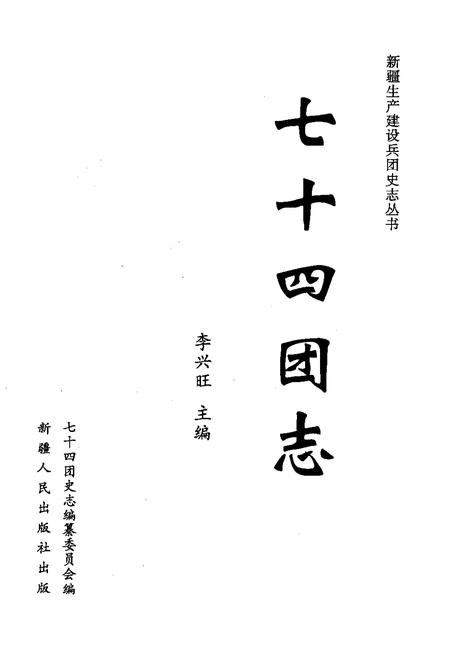 新疆生产建设兵团史志丛书
七十四团志
李兴旺 主编
七十四团史志编纂委员会编
新疆人民出版社出版